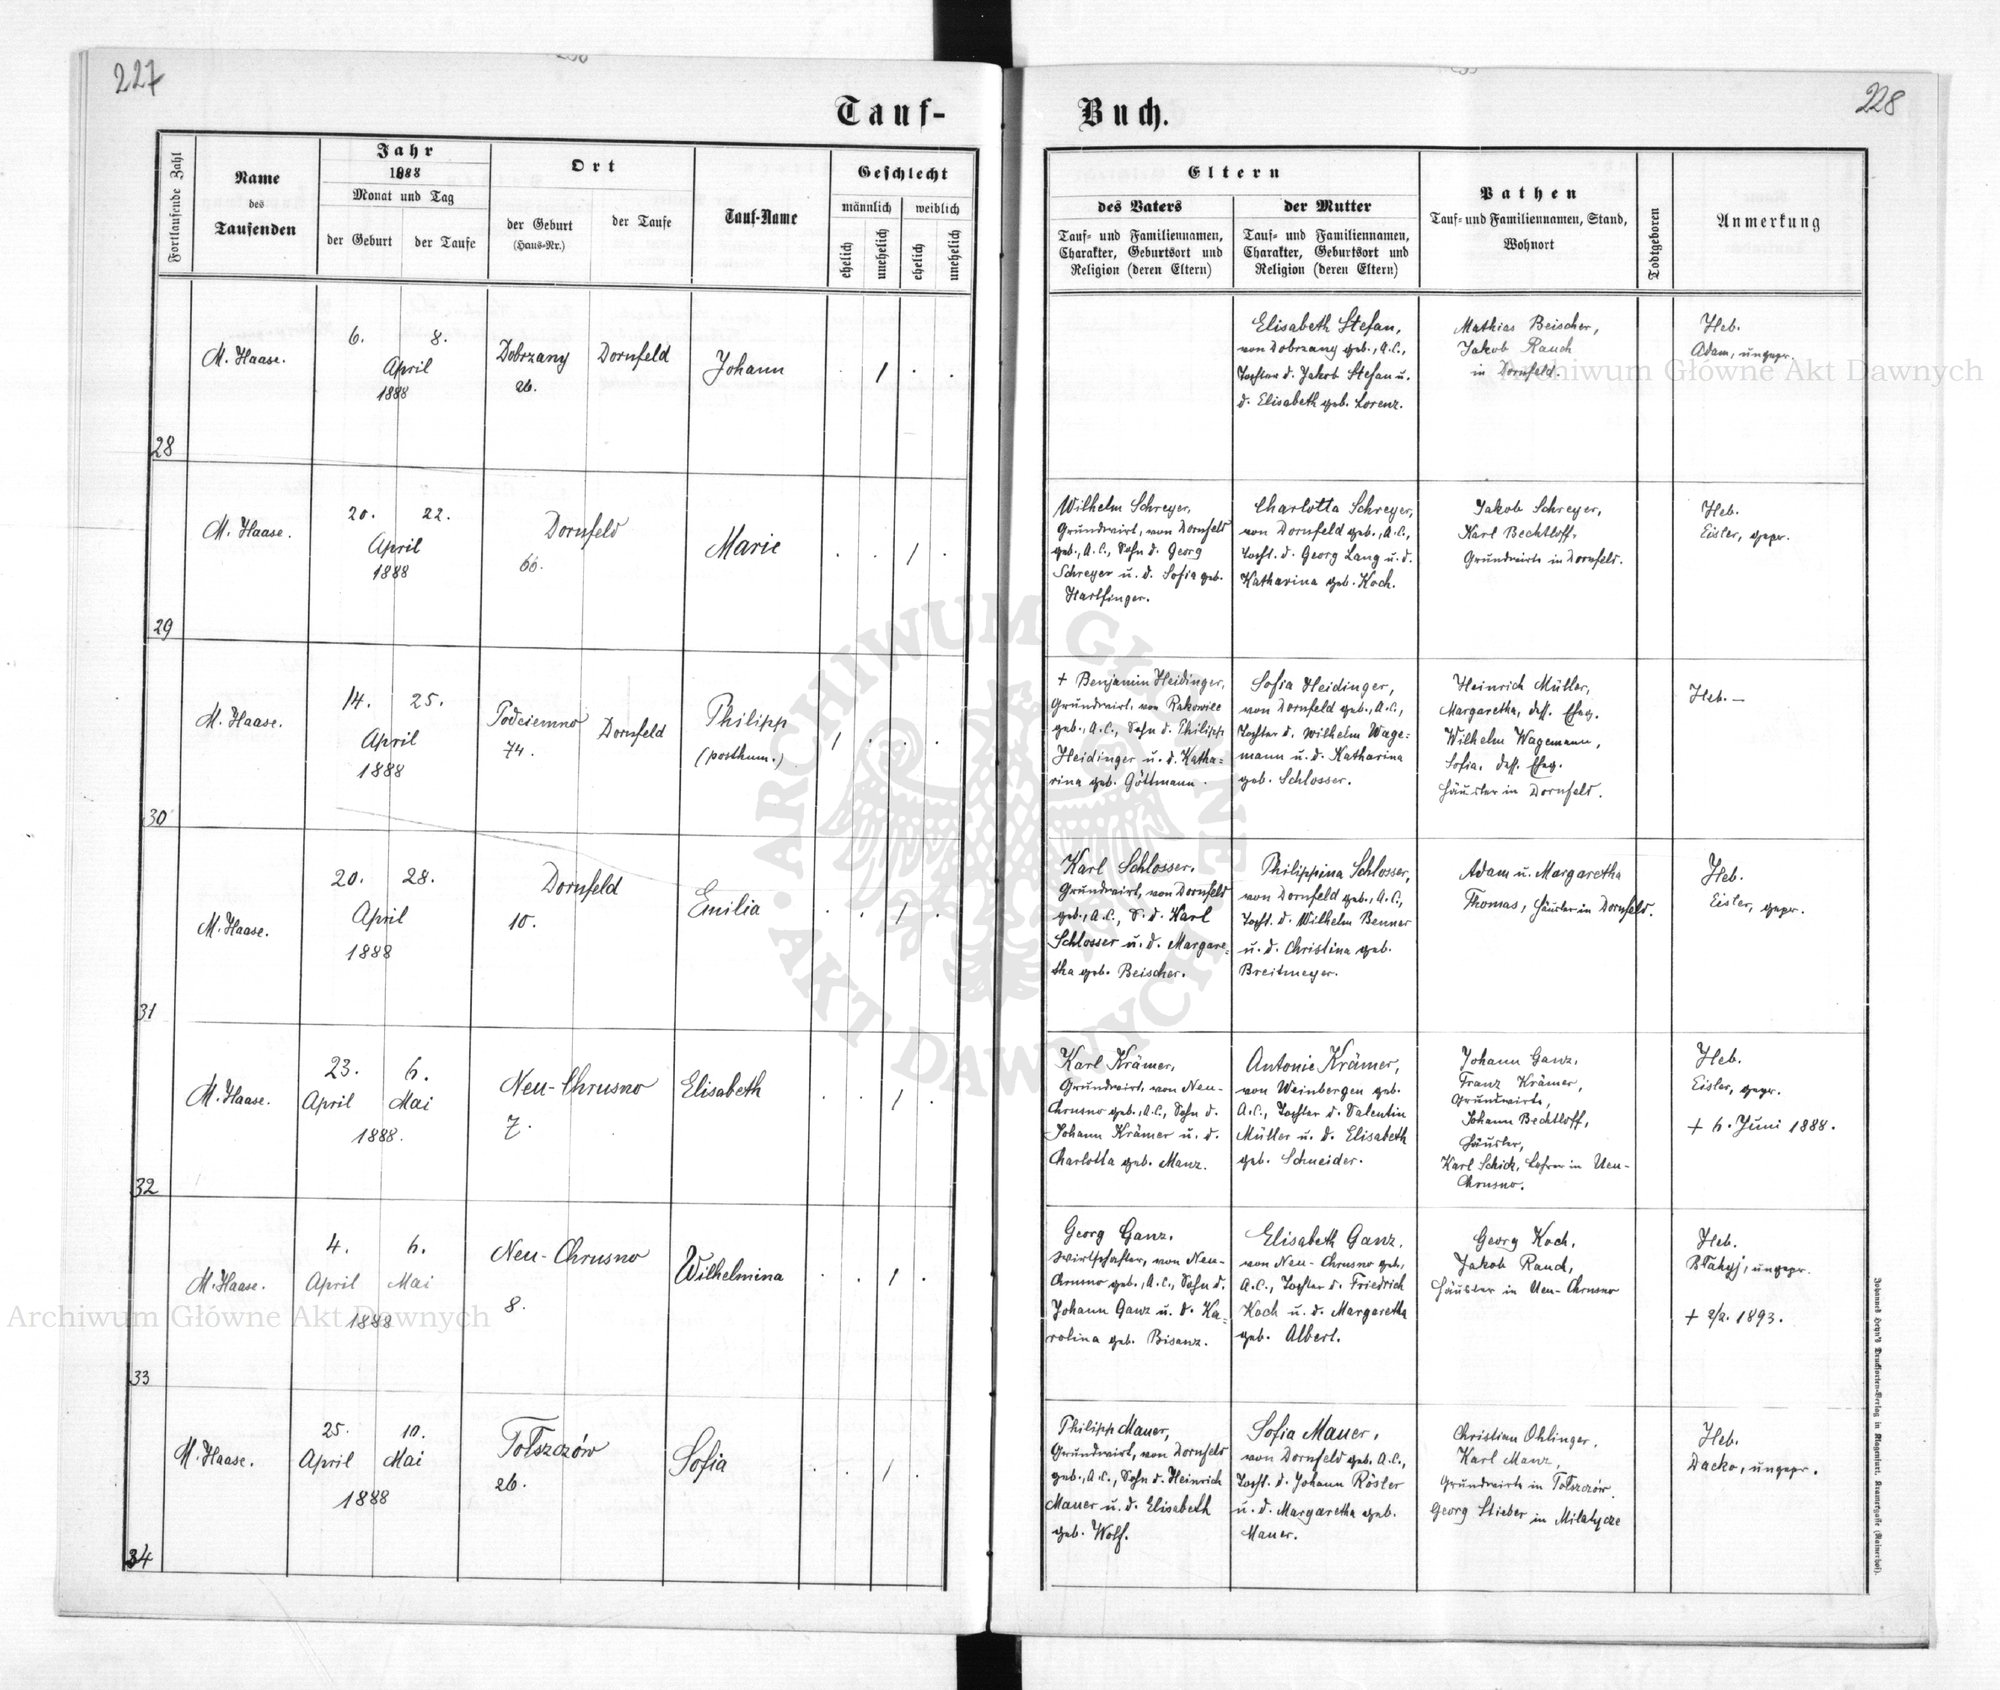 227
228
Tauf-
Buch.
Fortlaufende Zahl
Name
des
Taufenden
Jahr
1888
Monat und Tag
der Geburt
der Taufe
Ort
der Geburt
(Haus-Nr.)
der Taufe
Tauf-Name
Geschlecht
männlich
weiblich
ehelich
unehelich
ehelich
unehelich
Eltern
des Vaters
Tauf- und Familiennamen,
Charakter, Geburtsort und
Religion (deren Eltern)
der Mutter
Tauf- und Familiennamen,
Charakter, Geburtsort und
Religion (deren Eltern)
Pathen
Tauf- und Familiennamen, Stand,
Wohnort
Todtgeboren
Anmerkung
28
M. Haase.
6. 8.
April
1888
Dobrzany
26.
Dornfeld
Johann
Elisabeth Stefan,
von Dobrzany geb., A.C.,
Tochter d. Jakob Stefan u.
d. Elisabeth geb. Lorenz.
Mathias Beischer,
Jakob Rauch
in Dornfeld.
Heb.
Adam, ungepr.
29
M. Haase.
20. 22.
April
1888
Dornfeld
60.
Marie
Wilhelm Schreyer,
Grundwirt, von Dornfeld
geb., A.C., Sohn d. Georg
Schreyer u. d. Sofia geb.
Harlfinger.
Charlotta Schreyer,
von Dornfeld geb., A.C.,
Tocht. d. Georg Lang u. d.
Katharina geb. Koch.
Jakob Schreyer,
Karl Bechtloff,
Grundwirte in Dornfeld.
Heb.
Eisler, gepr.
30
M. Haase.
14. 25.
April
1888
Podciemno
74.
Dornfeld
Philipp
(posthum.)
+ Benjamin Heidinger,
Grundwirt, von Rakowiec
geb., A.C., Sohn d. Philipp
Heidinger u. d. Katha-
rina geb. Göttmann.
Sofia Heidinger,
von Dornfeld geb., A.C.,
Tochter d. Wilhelm Wage-
mann u. d. Katharina
geb. Schlosser.
Heinrich Müller,
Margaretha, dess. Eheg.
Wilhelm Wagemann,
Sofia, dess. Eheg.
Häusler in Dornfeld.
Heb. —
31
M. Haase.
20. 28.
April
1888
Dornfeld
10.
Emilia
Karl Schlosser,
Grundwirt, von Dornfeld
geb., A.C., S. d. Karl
Schlosser u. d. Margare-
tha geb. Beischer.
Philippina Schlosser,
von Dornfeld geb., A.C.,
Tocht. d. Wilhelm Benner
u. d. Christina geb.
Breitmeyer.
Adam u. Margaretha
Thomas, Häusler in Dornfeld.
Heb.
Eisler, gepr.
32
M. Haase.
23. 6.
April Mai
1888.
Neu-Chrusno
7.
Elisabeth
Karl Krämer,
Grundwirt, von Neu-
Chrusno geb., A.C., Sohn d.
Johann Krämer u. d.
Charlotta geb. Manz.
Antonie Krämer,
von Weinbergen geb.
A.C., Tochter d. Valentin
Müller u. d. Elisabeth
geb. Schneider.
Johann Ganz,
Franz Krämer,
Grundwirte,
Johann Bechtloff,
Häusler,
Karl Schick, Lehrer in Neu-
Chrusno.
Heb.
Eisler, gepr.
+ 6. Juni 1888.
33
M. Haase.
4. 6.
April Mai
1888
Neu-Chrusno
8.
Wilhelmina
Georg Ganz,
Wirtschafter, von Neu-
Chrusno geb., A.C., Sohn d.
Johann Ganz u. d. Ka-
rolina geb. Bisanz.
Elisabeth Ganz,
von Neu-Chrusno geb.,
A.C., Tochter d. Friedrich
Koch u. d. Margaretha
geb. Albert.
Georg Koch,
Jakob Rauch,
Häusler in Neu-Chrusno
Heb.
ungepr.
+ 2/2. 1893.
34
M. Haase.
25. 10.
April Mai
1888
Tołszczów
26.
Sofia
Philipp Mauer,
Grundwirt, von Dornfeld
geb., A.C., Sohn d. Heinrich
Mauer u. d. Elisabeth
geb. Wolf.
Sofia Mauer,
von Dornfeld geb. A.C.,
Tocht. d. Johann Röster
u. d. Margaretha geb.
Mauer.
Christian Ohlinger,
Karl Manz,
Grundwirte in Tołszczów,
Georg Stieber in Milatycze
Heb.
Dacko, ungepr.
Johannes Heyn's Drucksorten-Verlag in Klagenfurt, Kramergasse (Rainerhof).
Archiwum Główne Akt Dawnych
Archiwum Główne Akt Dawnych
ARCHIWUM GŁÓWNE
AKT DAWNYCH